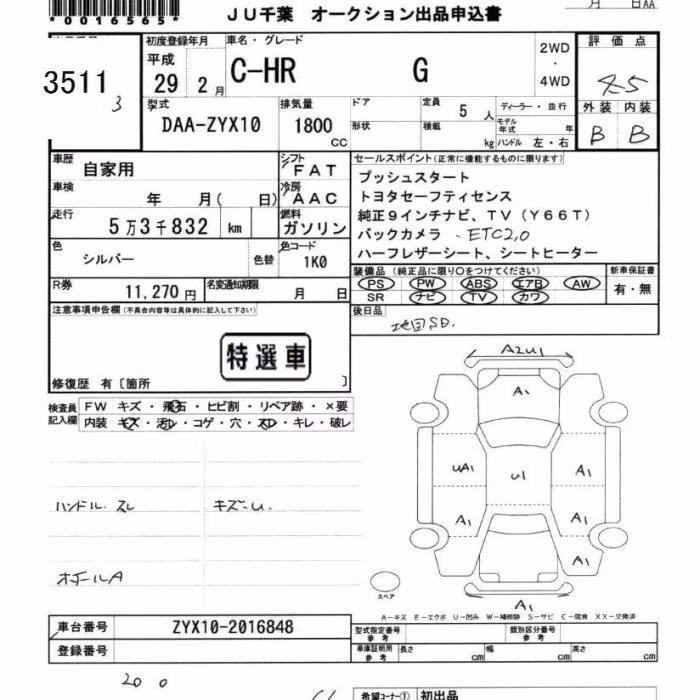 *0016565*
月 日AA
JU千葉 オークション出品申込書
3511
3
初度登録年月
平成
29 2 月
車名・グレード
C-HR G
2WD
・
4WD
評価点
4.5
外装 内装
B B
型式
DAA-ZYX10
排気量
1800
CC
ドア
形状
定員 5 人
積載 kg
ディーラー・並行
モデル年式 年
ハンドル 左・右
車歴
自家用
シフト
FAT
車検
年 月( 日)
冷房
AAC
走行
5万3千832 km
燃料
ガソリン
色
シルバー
色替
色コード
1K0
R券
11,270円
名変通知期限
月 日
セールスポイント(正常に機能するものに限ります)
プッシュスタート
トヨタセーフティセンス
純正9インチナビ、TV(Y66T)
バックカメラ 、ETC2,0
ハーフレザーシート、シートヒーター
装備品(純正品に限り○をつけてください)
PS PW ABS エアB AW
SR ナビ TV カワ
新車保証書
有・無
後日品
地図SD.
注意事項申告欄(不具合内容等は具体的に記入して下さい)
特選車
修復歴 有〔箇所 〕
検査員
記入欄
FW キズ・飛石・ヒビ割・リペア跡・×要
内装 キズ・汚レ・コゲ・穴・スレ・キレ・破レ
ハンドル.スレ
キズ・U.
ホイールA
A2U1
A1
UA1
U1
A1
A1
A1
A1
A1
スペア
A-キズ E-エクボ U-凹み W-補修跡 S-サビ C-腐食 XX-交換済
車台番号
ZYX10-2016848
登録番号
型式指定番号
参考
類別区分番号
参考
車庫証明用
参考
長さ cm 幅 cm 高さ cm
20 0
希望コーナー① 初出品